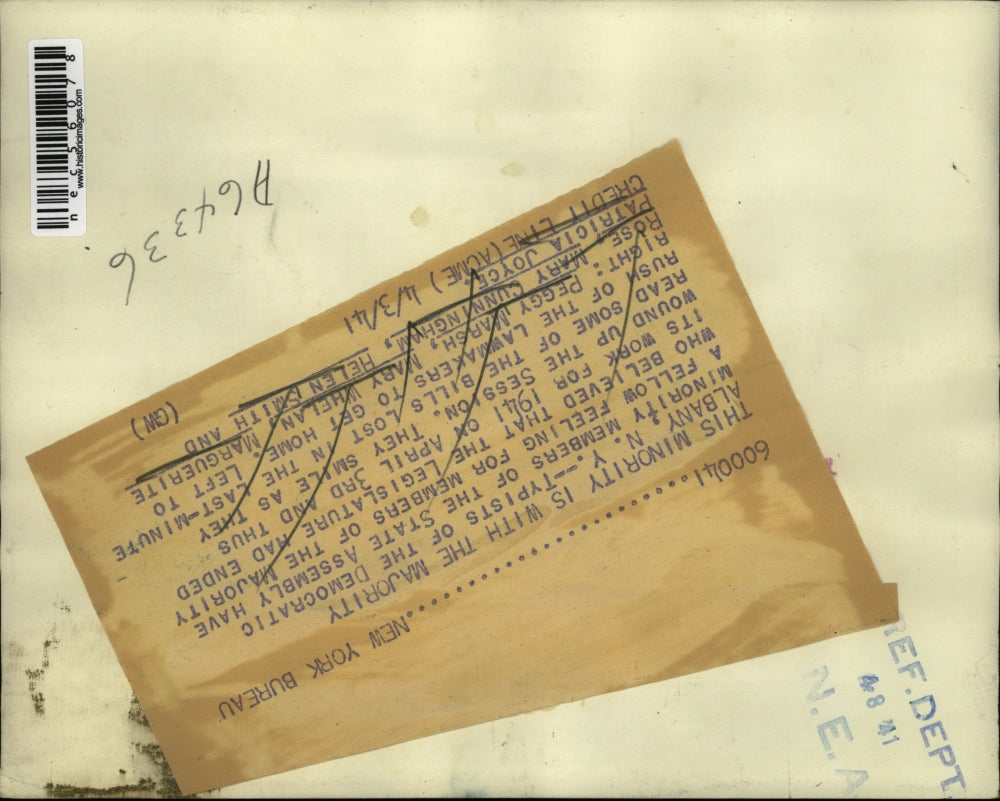 nec56078
www.historicimages.com
A64336
600041..............NEW YORK BUREAU
THIS MINORITY IS WITH THE MAJORITY
ALBANY, N. Y.--TYPISTS OF THE DEMOCRATIC
MINORITY MEMBERS OF THE STATE ASSEMBLY HAVE
A FELLOW FEELING FOR THE MEMBERS OF THE MAJORITY
WHO BELIEVED THAT THE LEGISLATURE HAD ENDED
ITS WORK FOR 1941 ON APRIL 3RD AND THUS
WOUND UP THE SESSION. THEY SMILE AS THEY
READ SOME OF THE BILLS LOST IN THE LAST-MINUTE
RUSH OF THE LAWMAKERS TO GET HOME. LEFT TO
RIGHT: PEGGY MARSH, MARY WHELAN, MARGUERITE
ROSE, MARY CUNNINGHM, HELEN SMITH AND
PATRICIA JOYCE
CREDIT LINE (ACME) 4/3/41 (GW)
REF. DEPT.
4 8 41
N.E.A